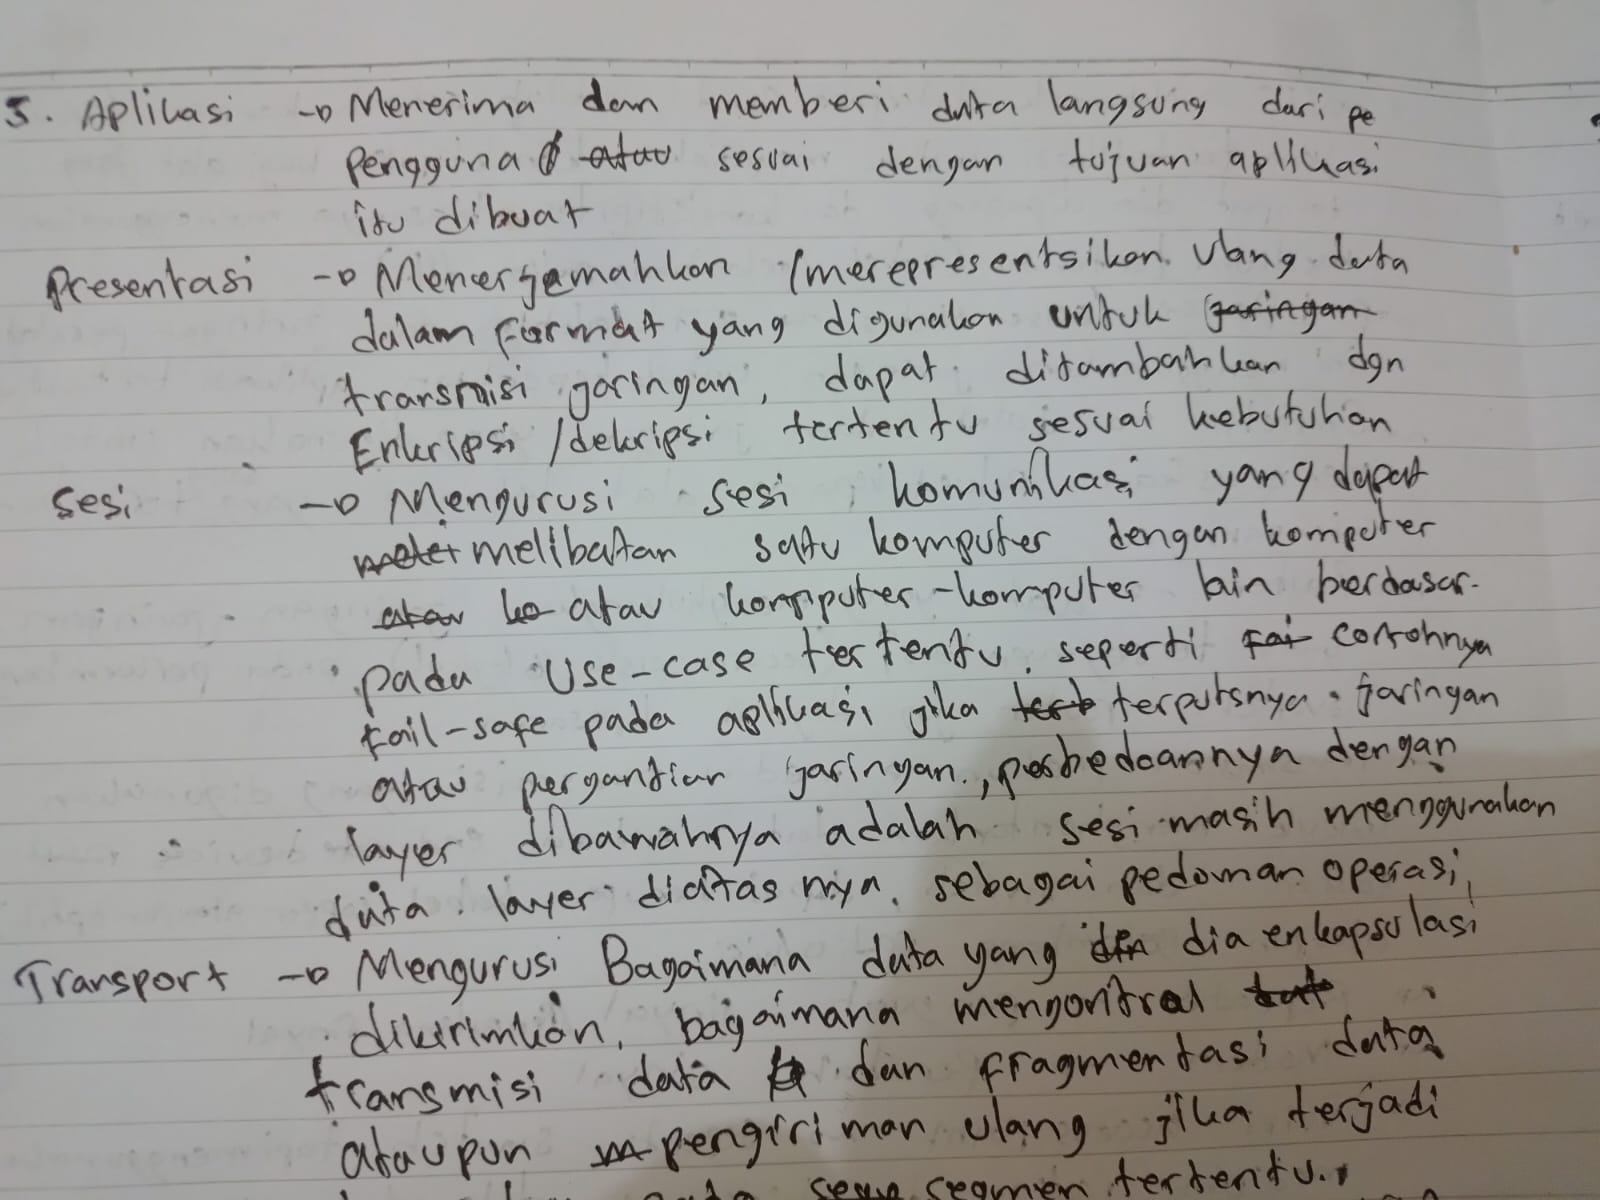 5. Aplikasi → Menerima dan memberi data langsung dari pe
pengguna atau sesuai dengan tujuan aplikasi
itu dibuat
Presentasi → Menerjemahkan /merepresentsikan ulang data
dalam format yang digunakan untuk jaringan
transmisi jaringan, dapat ditambahkan dgn
Enkripsi /dekripsi tertentu sesuai kebutuhan
Sesi → Mengurusi sesi komunikasi yang dapat
melibatan satu komputer dengan komputer
atau ko atau komputer-komputer lain berdasar-
pada use-case tertentu, seperti fai contohnya
fail-safe pada aplikasi jika terputsnya jaringan
atau pergantian jaringan, perbedaannya dengan
layer dibawahnya adalah sesi masih menggunakan
data layer diatasnya, sebagai pedoman operasi,
Transport → Mengurusi Bagaimana data yang dia enkapsulasi
dikirimkan, bagaimana mengontrol
transmisi data dan fragmentasi data
ataupun pengiriman ulang jika terjadi
segmen tertentu.